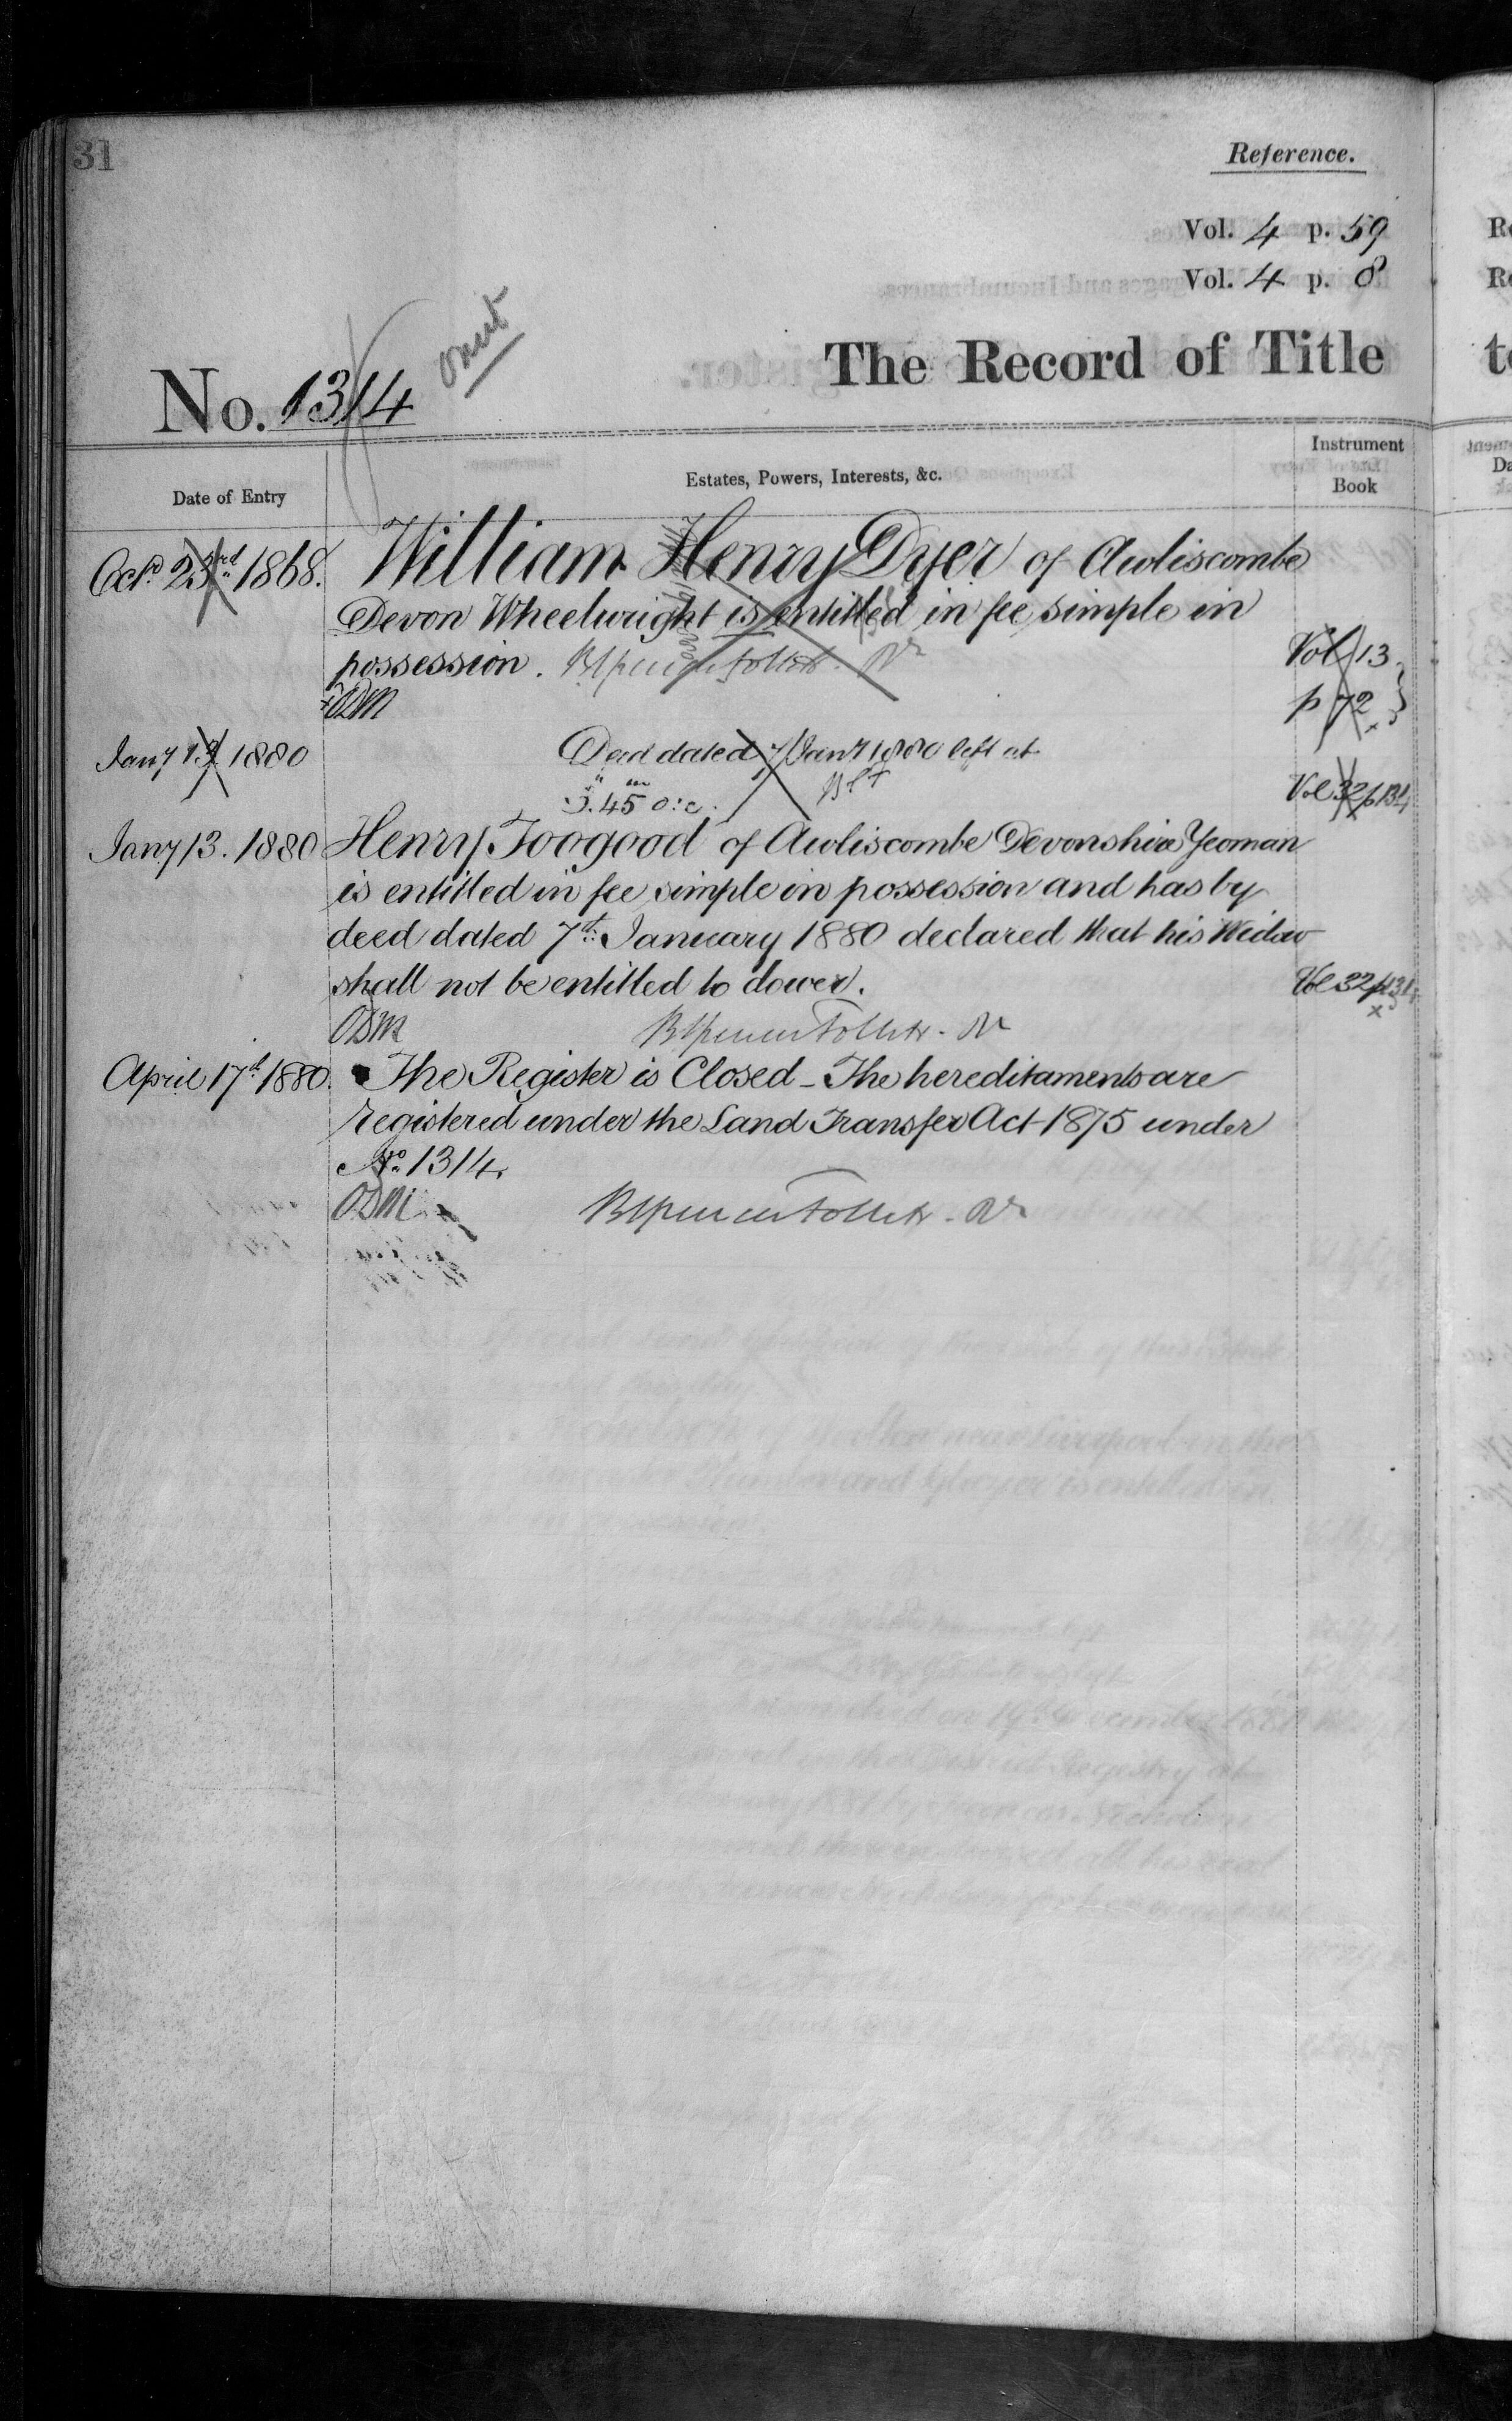 31
Reference.
Vol. 4 p. 59
Vol. 4 p. 8
omit
The Record of Title
No. 1314
Date of Entry
Estates, Powers, Interests, &c.
Instrument Book
Octr 23rd 1868. William Henry Dyer of Awliscombe
Devon Wheelwright is entitled in fee simple in
possession. Vol 13
p 72
Jany 13 1880 Deed dated 7 Jany 1880 left at
3.45 o:c. Vol 32 p 131
Jany 13. 1880 Henry Toogood of Awliscombe Devonshire Yeoman
is entitled in fee simple in possession and has by
deed dated 7th January 1880 declared that his Widow
shall not be entitled to dower. Vol 32 p 131
April 17th 1880. The Register is Closed - The hereditaments are
registered under the Land Transfer Act 1875 under
No. 1314